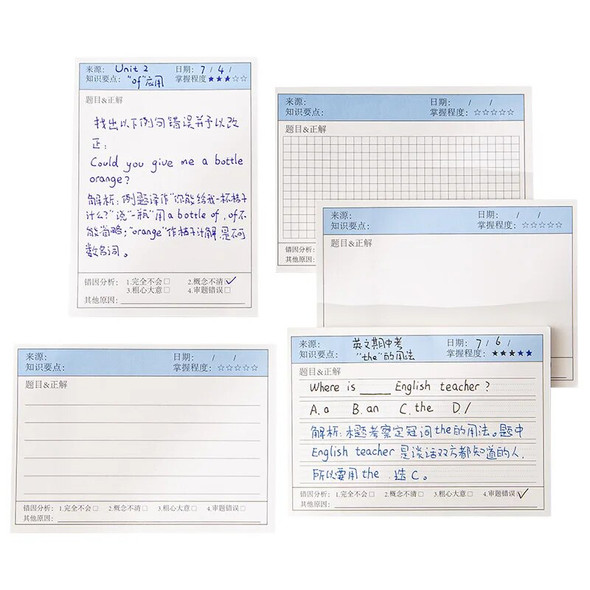 来源: Unit 2 日期: 7 / 4 /
知识要点: "of"应用 掌握程度: ★★★☆☆
题目&正解
找出以下例句错误并予以改
正:
Could you give me a bottle
orange?
解析:例题译作"你能给我一杯桔子
什么?"说"一瓶"用a bottle of, of不
能省略;"orange"作桔子汁解是不可
数名词。
错因分析: 1.完全不会□ 2.概念不清☑
3.粗心大意□ 4.审题错误□
其他原因:
来源: 日期: / /
知识要点: 掌握程度: ☆☆☆☆☆
题目&正解
错因分析: 1.完全不会
其他原因:
来源: 日期: / /
知识要点: 掌握程度: ☆☆☆☆☆
题目&正解
来源: 日期: / /
知识要点: 掌握程度: ☆☆☆☆☆
题目&正解
错因分析: 1.完全不会□ 2.概念不清□ 3.粗心大意□ 4.审题错误□
其他原因:
来源: 英文期中考 日期: 7 / 6 /
知识要点: "the"的用法 掌握程度: ★★★★★
题目&正解
Where is ____ English teacher?
A. a B. an C. the D. /
解析:本题考察定冠词the的用法。题中
English teacher 是谈话双方都知道的人,
所以要用the 选C。
错因分析: 1.完全不会□ 2.概念不清□ 3.粗心大意□ 4.审题错误☑
其他原因: